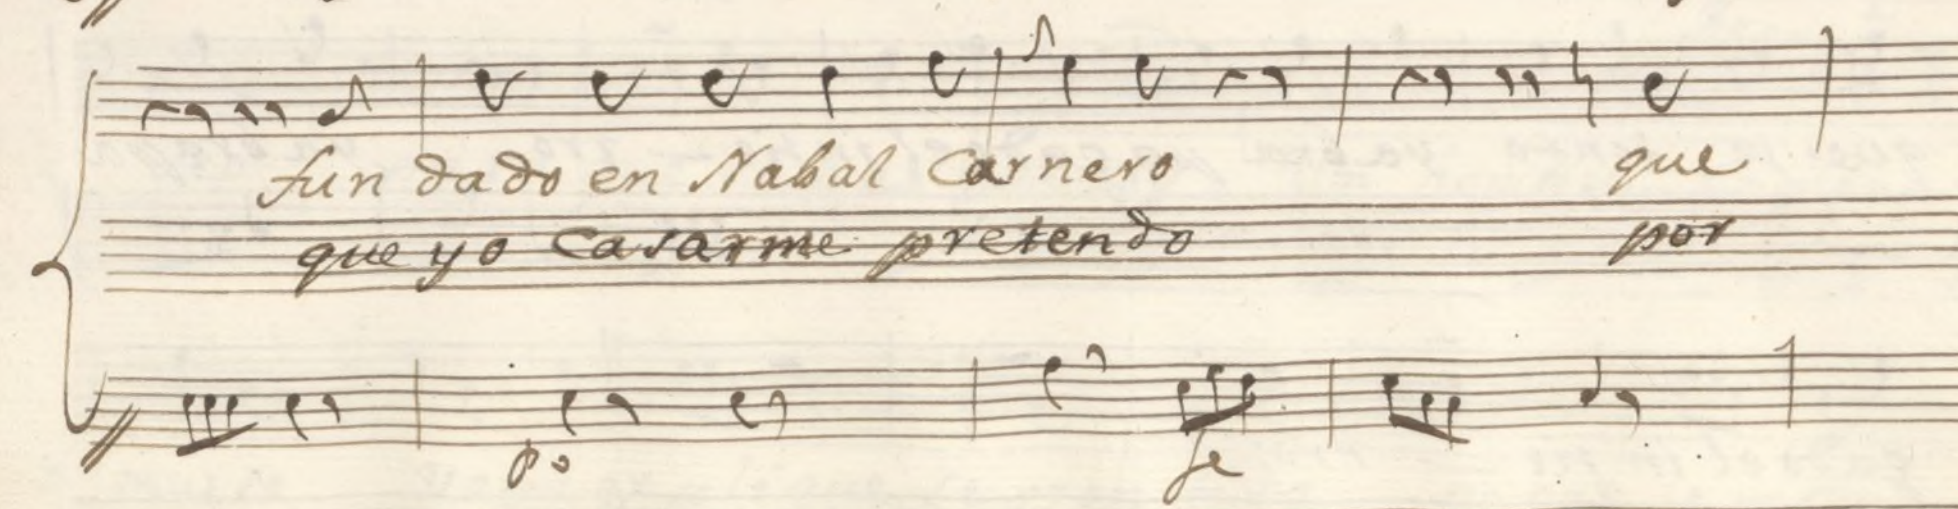 fun dado en Nabal Carnero que
que yo Casarme pretendo por
po fe